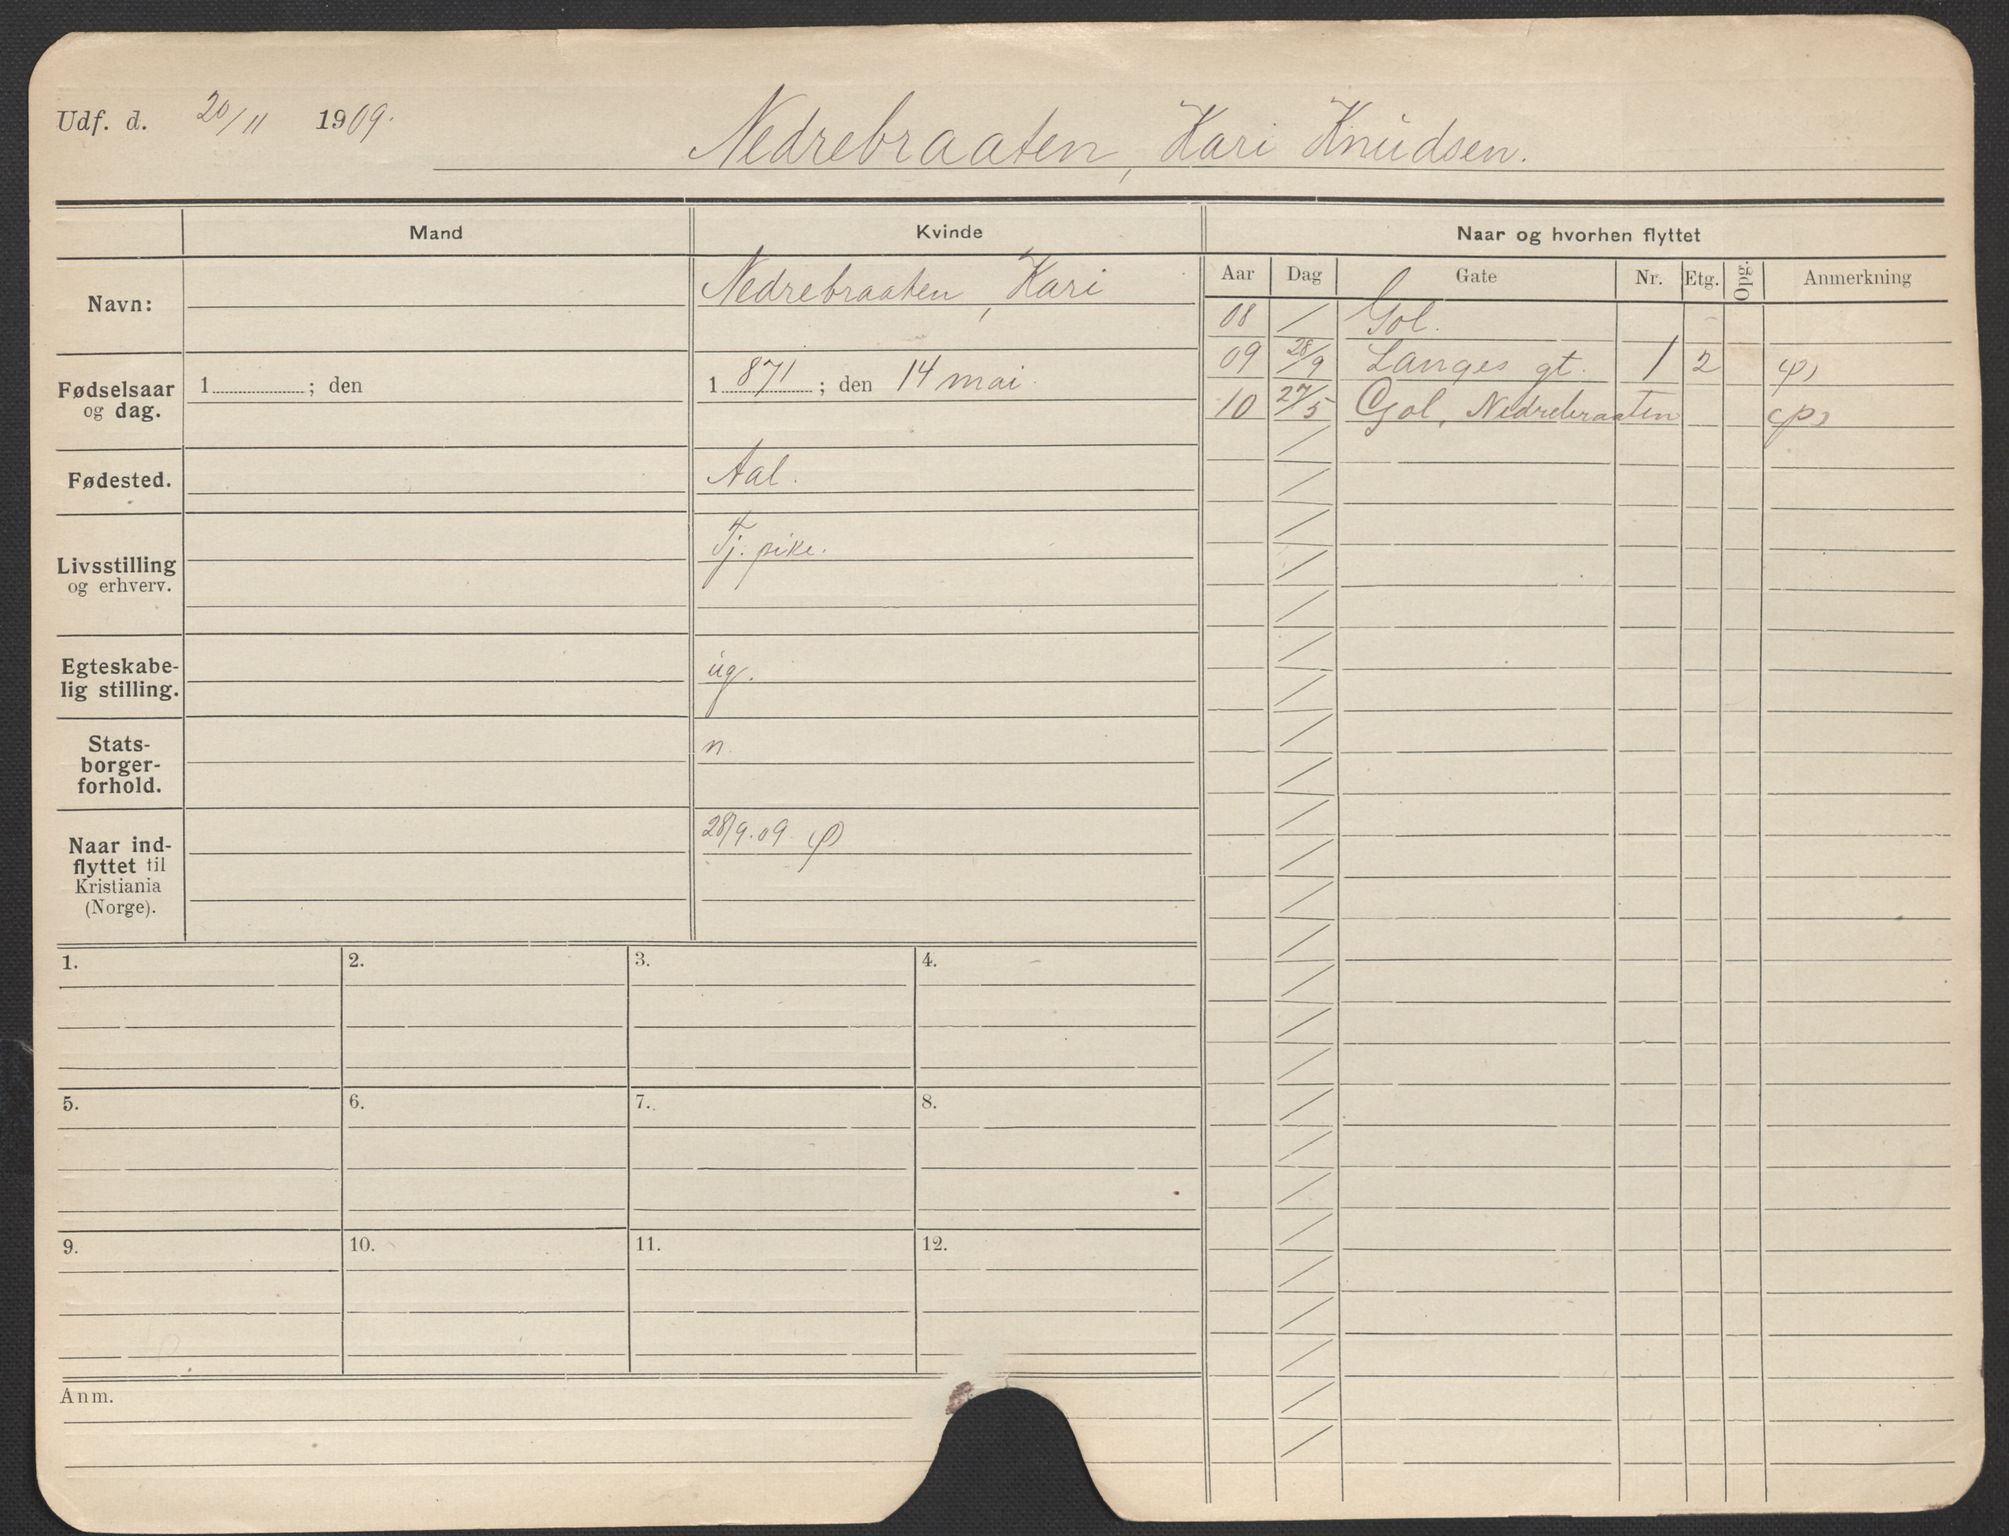 Udf. d. 20/11 1909.
Nedrebraaten, Kari Knudsen.
Mand
Kvinde
Naar og hvorhen flyttet
Aar Dag Gate Nr. Etg. Opg. Anmerkning
Navn:
Nedrebraaten, Kari
08 / Gol.
09 28/9 Langes gt. 1 2 (p)
10 27/5 Gol, Nedrebraaten (p)
Fødselsaar
og dag.
1 ; den
1 871 ; den 14 mai
Fødested.
Aal.
Livsstilling
og erhverv.
Tj. pike.
Egteskabe-
lig stilling.
ug.
Stats-
borger-
forhold.
n.
Naar ind-
flyttet til
Kristiania
(Norge).
28/9.09. (p)
1. 2. 3. 4.
5. 6. 7. 8.
9. 10. 11. 12.
Anm.